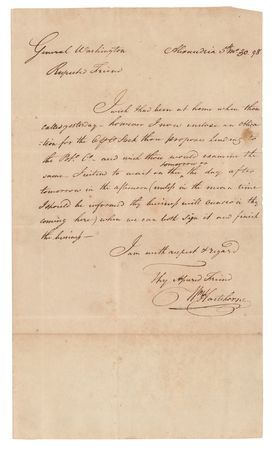 General Washington Alexandria 5th mo. 30. 98
Respected Friend
I wish I had been at home when thou
called yesterday - however I now enclose an obliga
tion for the 6 pCt Stock thou propose lending to
the Pot. Co. and wish thou would examine the
tomorrow or
same - I intend to wait on thee the day after
tomorrow in the afternoon (unless in the mean time
I should be informed thy business will
coming here) when we can both sign it and finish
the business -
I am with respect & regard
Thy Assured Friend
Wm Hartshorne